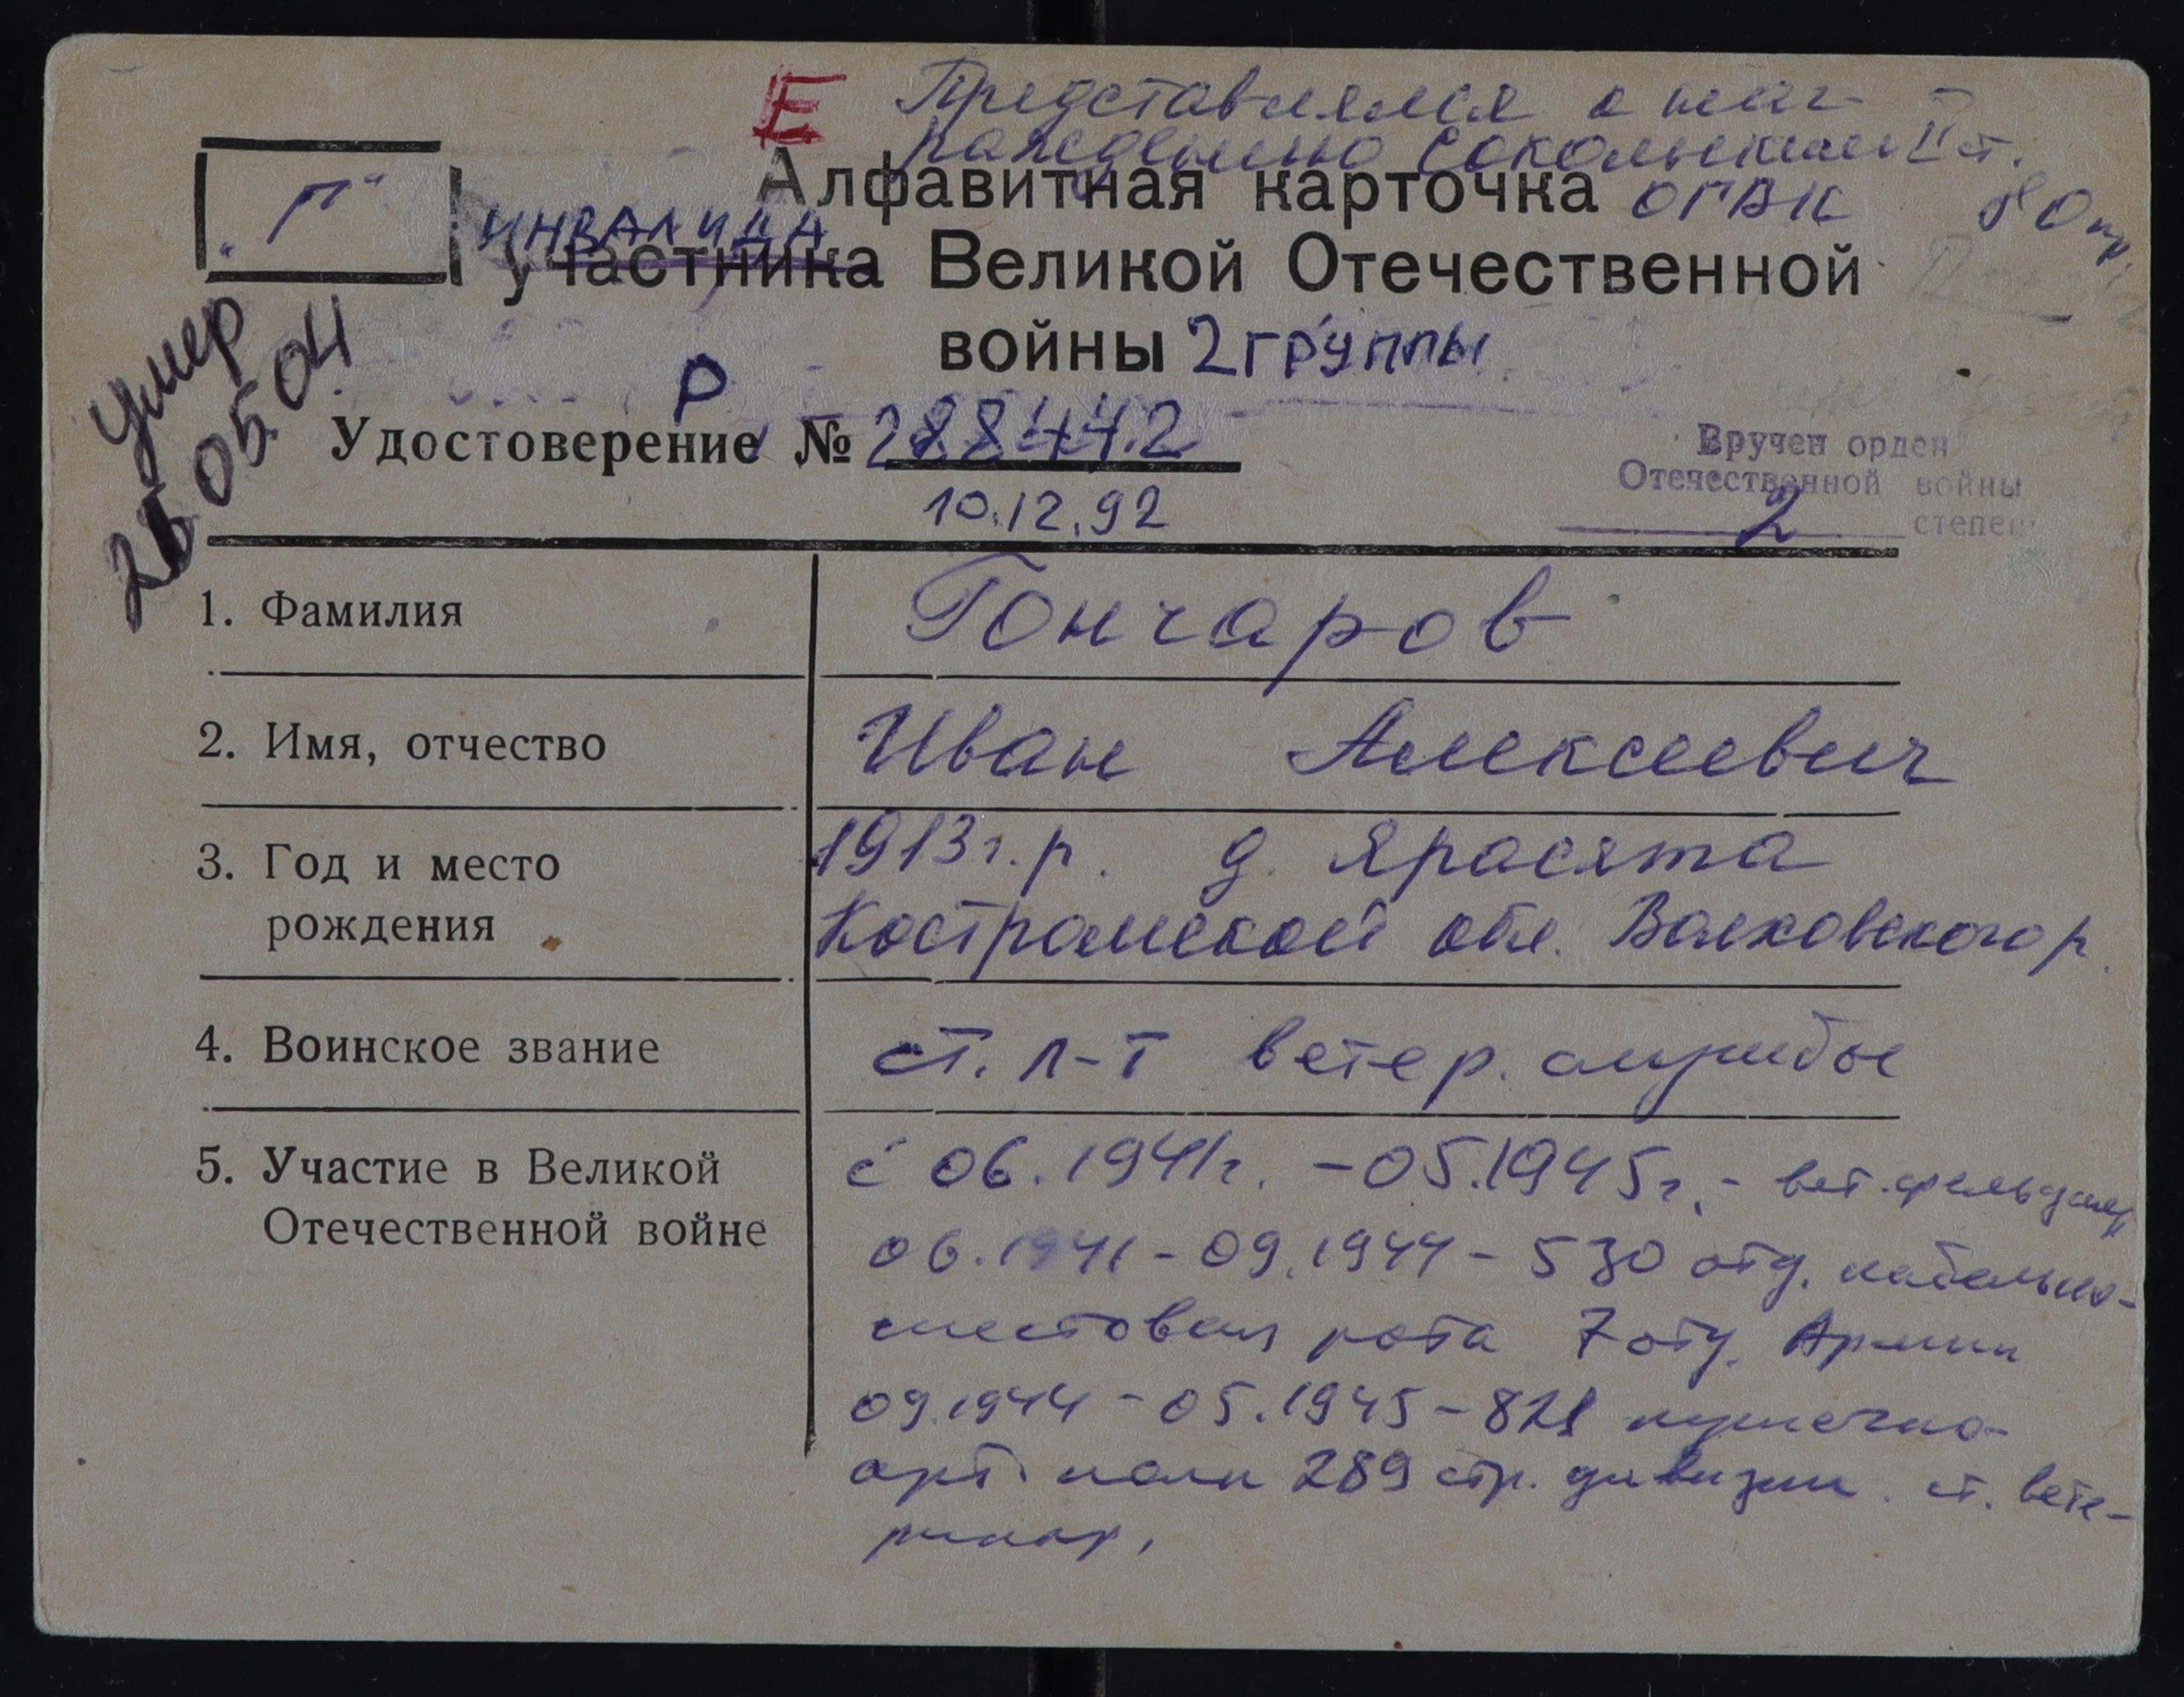 Е Представлялся к наг-
раждению Сокольским II ст.
"Г"
Алфавитная карточка ОГВК
ИНВАЛИДА
участника Великой Отечественной
войны 2 группы
умер
26.05.04
Р
Удостоверение № 288442
10.12.92
Вручен орден
Отечественной войны
2 степени
1. Фамилия Гончаров
2. Имя, отчество Иван Алексеевич
3. Год и место 1913 г.р. д. Ярасята
рождения Костромской обл. Волховского р.
4. Воинское звание ст. л-т ветер. службы
5. Участие в Великой с 06.1941г. - 05.1945г. - вет. фельдшер
Отечественной войне 06.1941 - 09.1944 - 530 отд. кабельно-
шестовая рота 7 отд. Армии
09.1944 - 05.1945 - 821 пушечно-
арт. полк 289 стр. дивизии. ст. вете-
ринар.